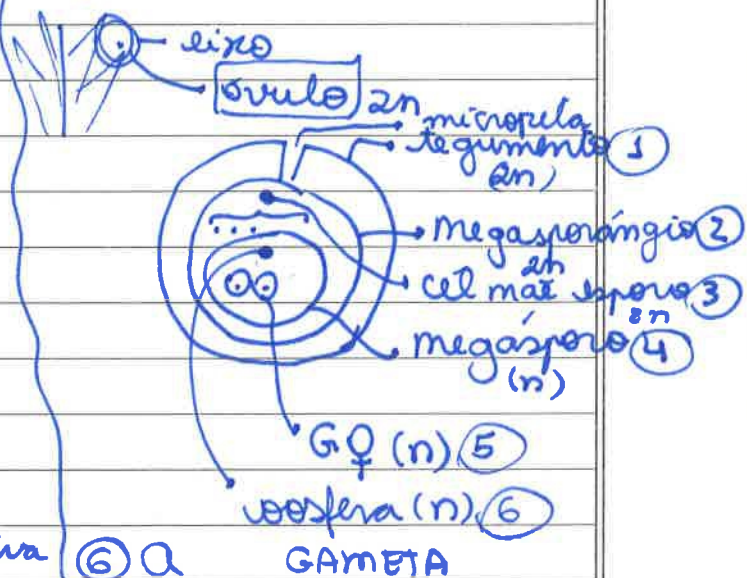 eixo
óvulo 2n
micrópila
tegumento 1
(2n)
megasporângio 2
2n
cel mãe esporo 3
2n
megásporo 4
(n)
G♀ (n) 5
oosfera (n) 6
6 a GAMETA